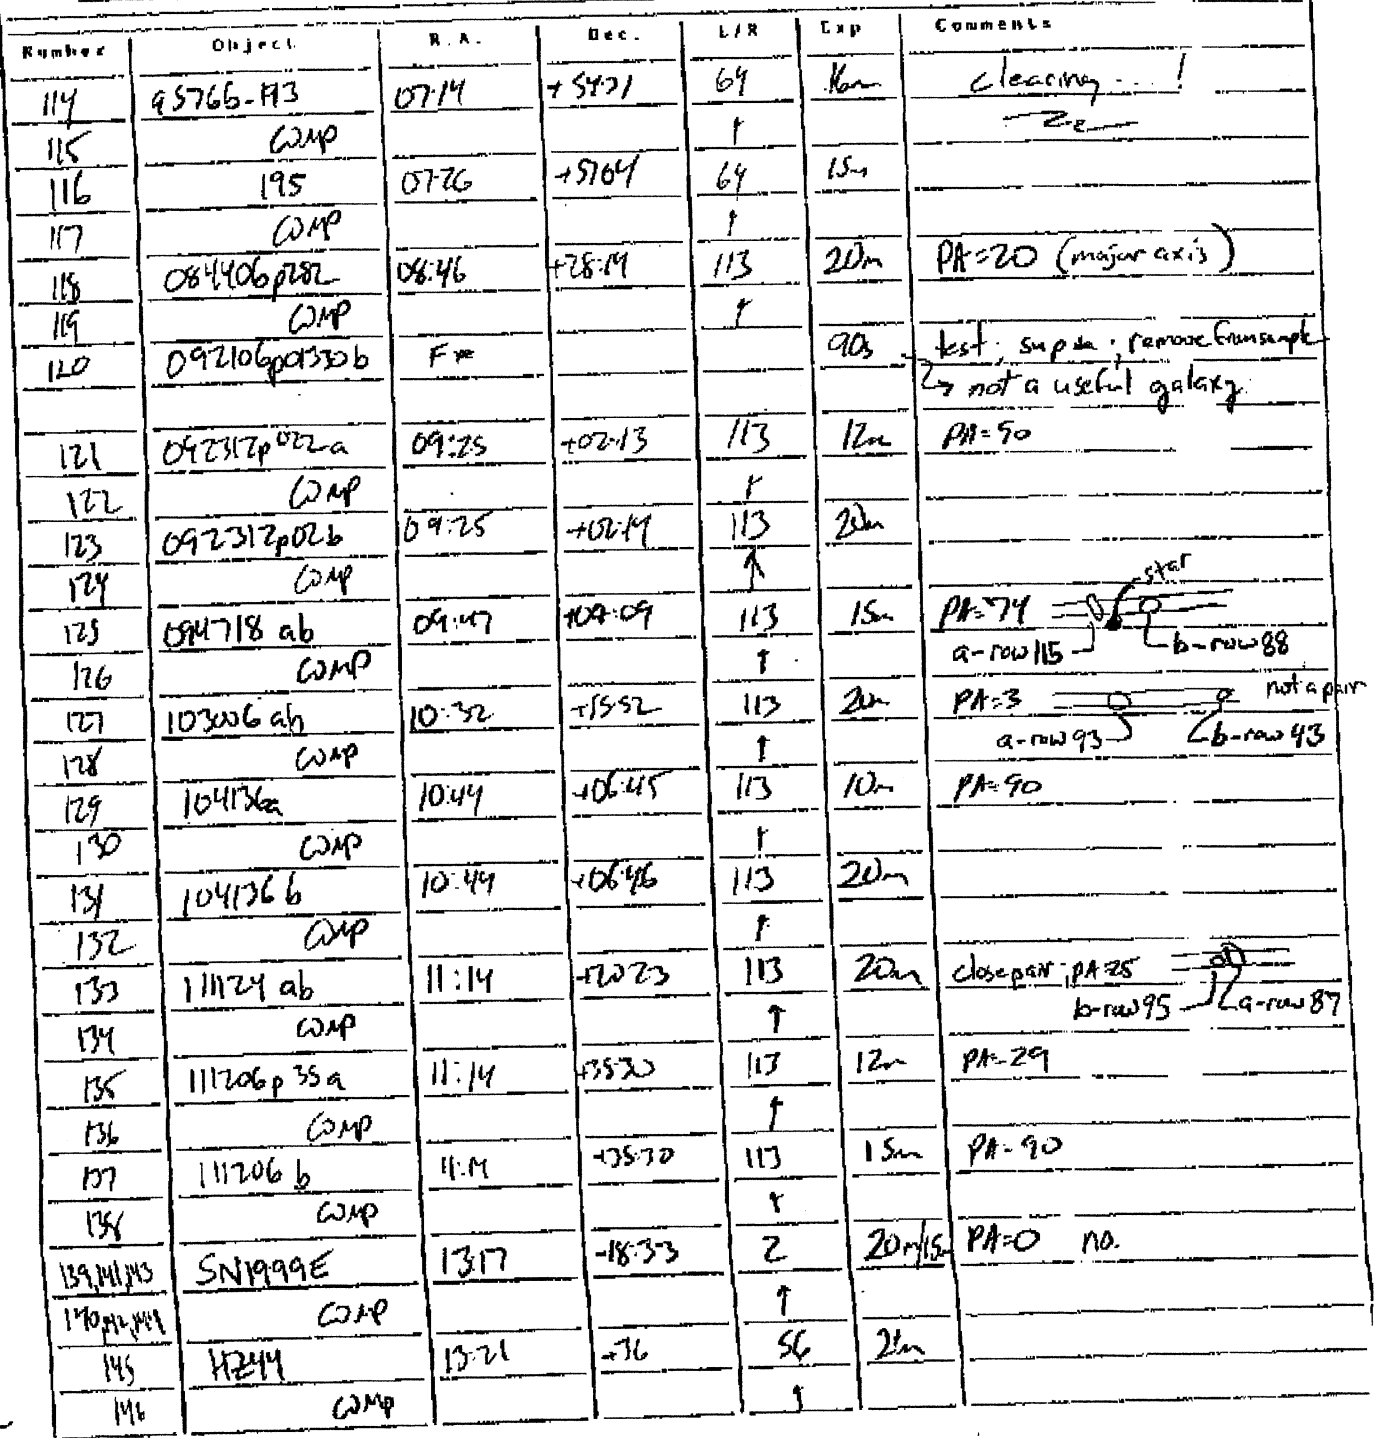 Number Object R.A. Dec. L/R Exp Comments
114 a576b-A13 07:14 +57:21 64 16m clearing....!
115 COMP ↑
116 195 07:26 +57:04 64 15m
117 COMP ↑
118 084406p282 08:46 +28:14 113 20m PA=20 (major axis)
119 COMP ↑
120 092106p01330b 90s test; remove from sample
→ not a useful galaxy
121 092312p022a 09:25 +02:13 113 12m PA=90
122 COMP ↑
123 092312p02b 09:25 +02:14 113 20m
124 COMP ↑ star
125 094718 ab 09:47 113 15m PA=74
126 COMP ↑ a-row 115 b-row 88
127 103006 ab 10:32 +15:52 113 20m PA=3 not a pair
128 COMP ↑ a-row 93 b-row 43
129 104136a 10:44 +06:45 113 10m PA=90
130 COMP ↑
131 104136 b 10:44 +06:46 113 20m
132 COMP ↑
133 111124 ab 11:14 +20:23 113 20m close pair; PA=25
134 COMP ↑ b-row 95 a-row 87
135 111206p35a 11:14 +35:30 113 12m PA=29
136 COMP ↑
137 111206 b 11:14 +35:30 113 15m PA=90
138 COMP ↑
139,141,143 SN1999E 13:17 -18:33 2 20m/15m PA=0 no.
140,142,144 COMP ↑
145 HZ44 13:21 +36 56 2m
146 COMP ↑